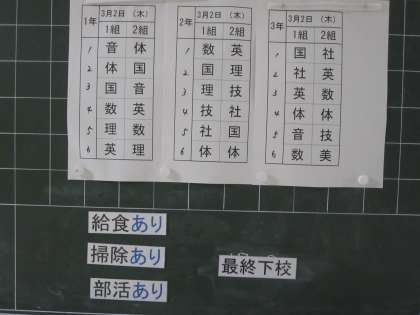 1年 3月2日 (木)
1組 2組
1 音 体
2 体 国
3 国 音
4 数 英
5 理 数
6 英 理
2年 3月2日 (木)
1組 2組
1 数 英
2 国 理
3 理 技
4 技 社
5 社 国
6 体 体
3年 3月2日 (木)
1組 2組
1 国 社
2 社 英
3 英 数
4 体 体
5 音 技
6 数 美
給食あり
掃除あり
部活あり
最終下校